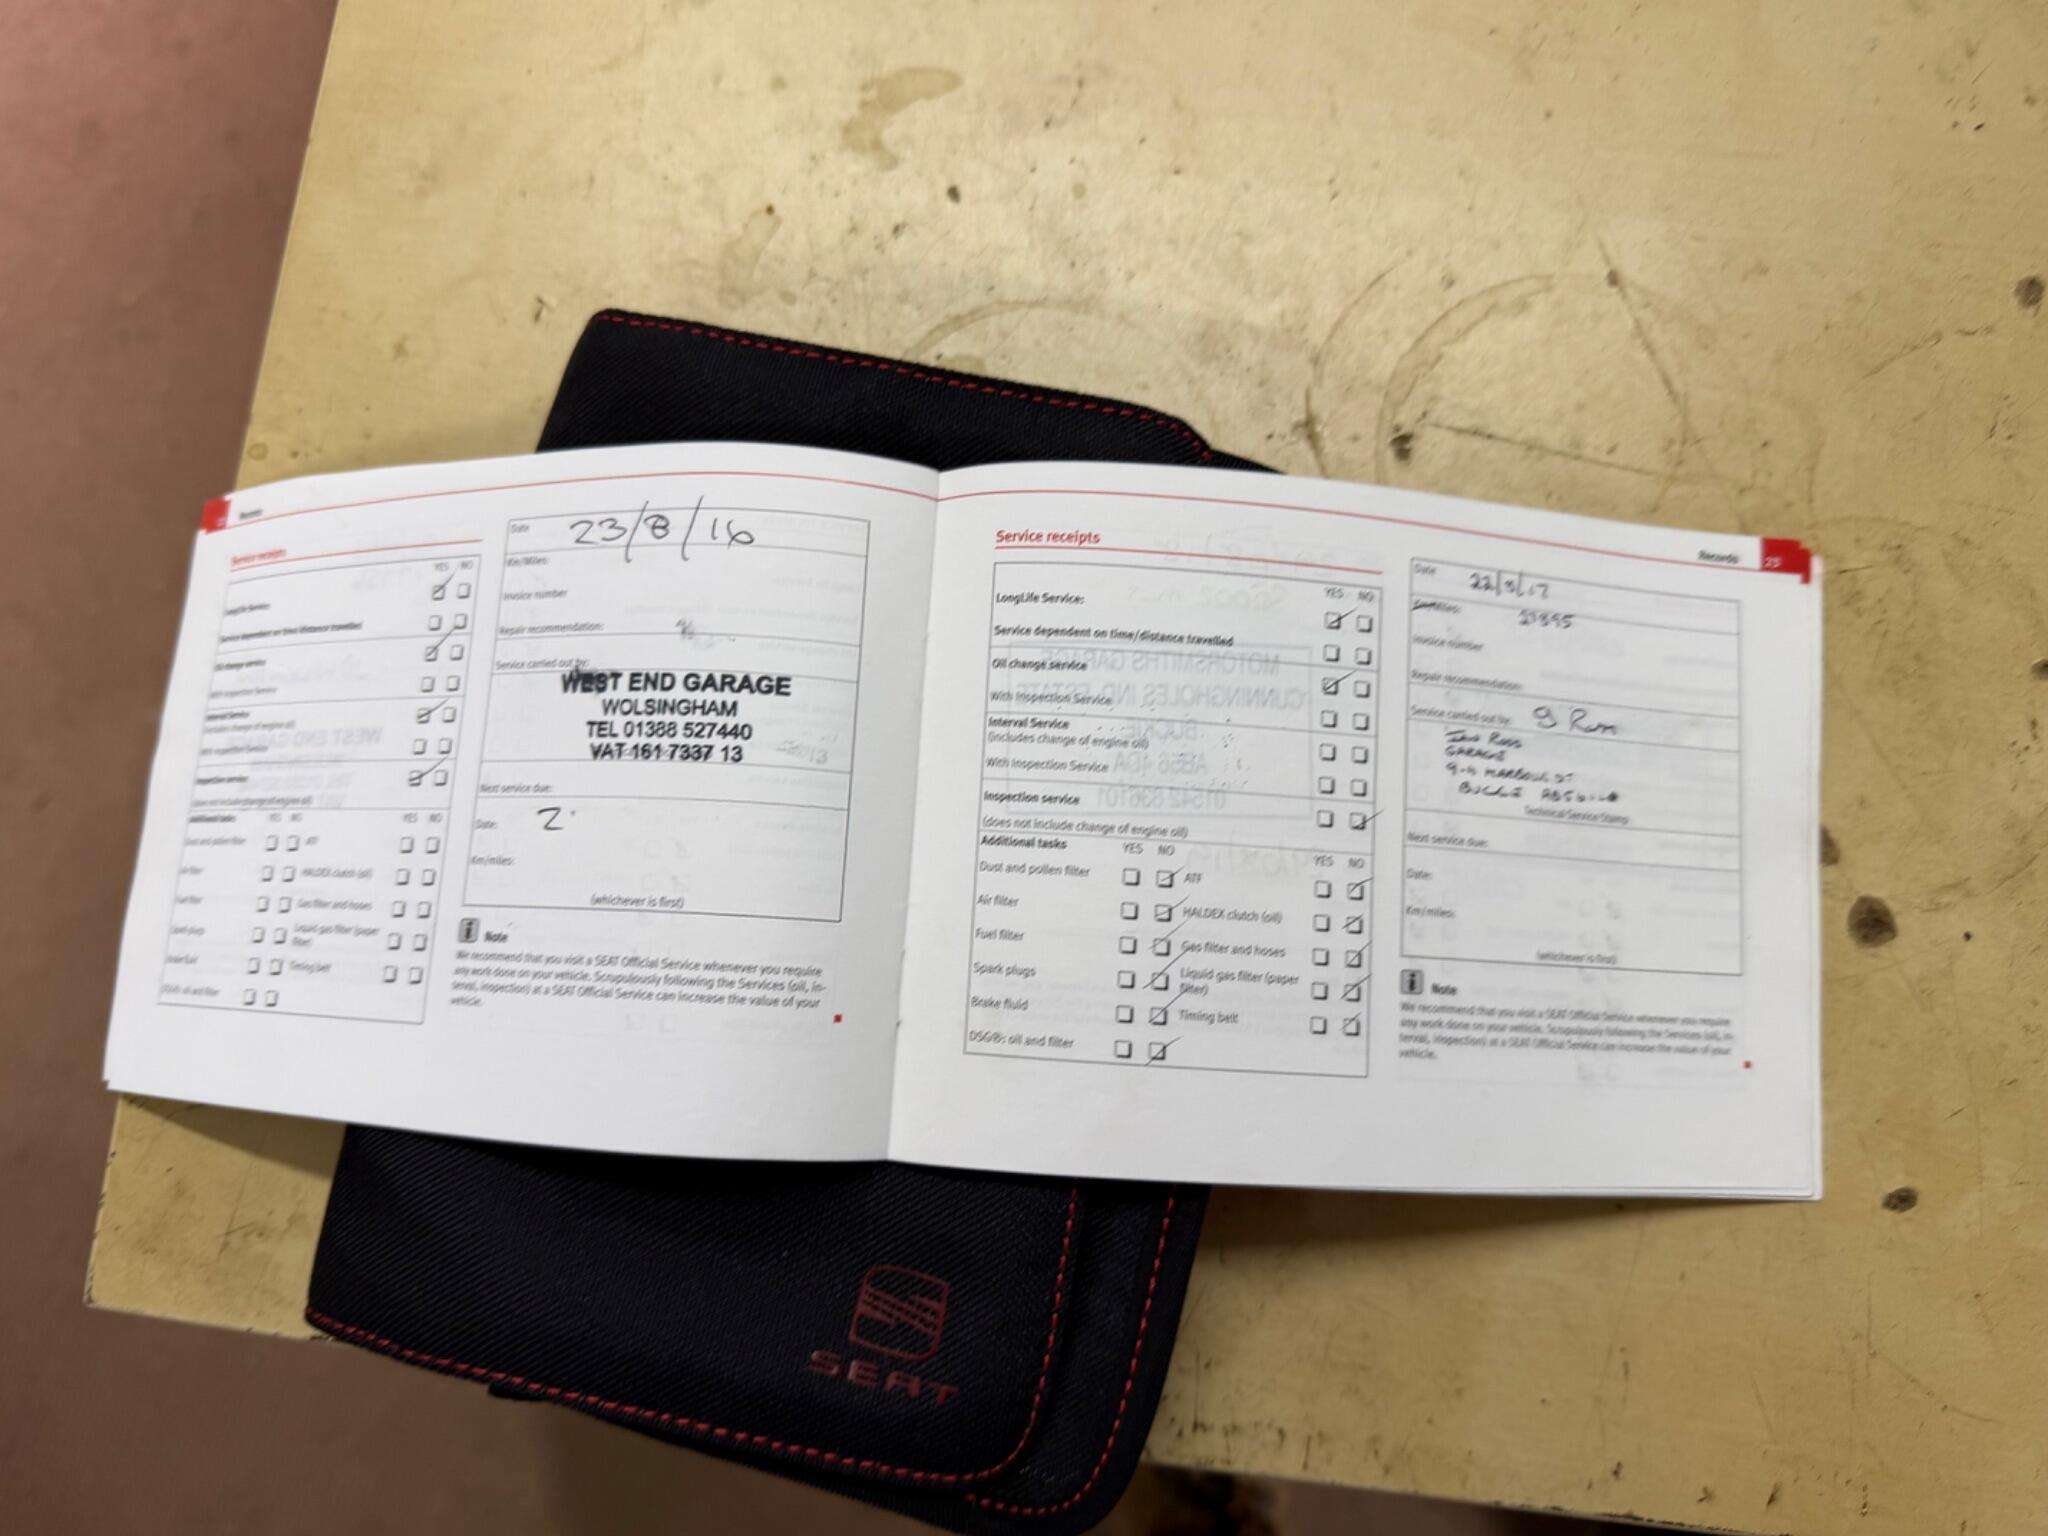 Records
Service receipts
YES NO
LongLife Service:
Service dependent on time/distance travelled
Oil change service
With Inspection Service
Interval Service
(includes change of engine oil)
With Inspection Service
Inspection service
(does not include change of engine oil)
Additional tasks YES NO YES NO
Dust and pollen filter ATF
Air filter HALDEX clutch (oil)
Fuel filter Gas filter and hoses
Spark plugs Liquid gas filter (paper
filter)
Brake fluid Timing belt
DSG®: oil and filter
Date 23/8/16
Km/Miles:
Invoice number
Repair recommendation:
Service carried out by:
WEST END GARAGE
WOLSINGHAM
TEL 01388 527440
VAT 161 7337 13
Next service due:
Date: 2
Km/miles:
(whichever is first)
Note
We recommend that you visit a SEAT Official Service whenever you require
any work done on your vehicle. Scrupulously following the Services (oil, in-
terval, inspection) at a SEAT Official Service can increase the value of your
vehicle.
Records 25
Service receipts
YES NO
LongLife Service:
Service dependent on time/distance travelled
Oil change service
With Inspection Service
Interval Service
(includes change of engine oil)
With Inspection Service
Inspection service
(does not include change of engine oil)
Additional tasks YES NO YES NO
Dust and pollen filter ATF
Air filter HALDEX clutch (oil)
Fuel filter Gas filter and hoses
Spark plugs Liquid gas filter (paper
filter)
Brake fluid Timing belt
DSG®: oil and filter
Date
Km/Miles:
Invoice number
Repair recommendation:
Service carried out by:
Ian Ross
GARAGE
Technical Service Stamp
Next service due:
Date:
Km/miles:
(whichever is first)
Note
We recommend that you visit a SEAT Official Service whenever you require
any work done on your vehicle. Scrupulously following the Services (oil, in-
terval, inspection) at a SEAT Official Service can increase the value of your
vehicle.
SEAT